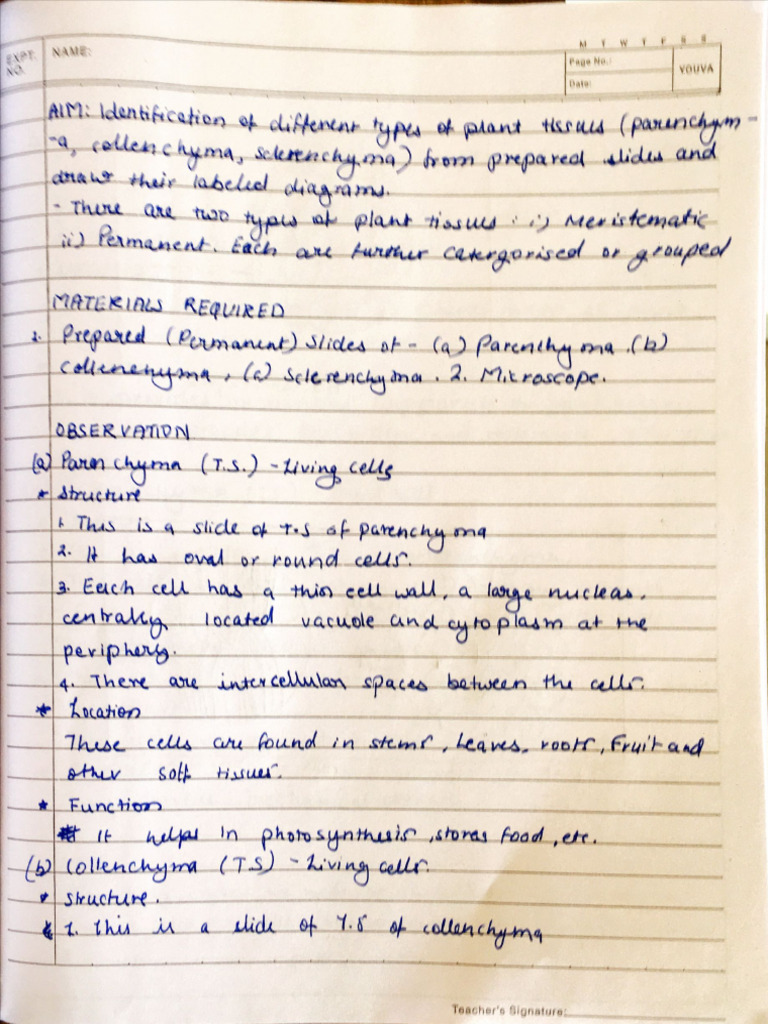 M T W T F S S
EXPT. NO.
NAME:
Page No.:
Date:
YOUVA
AIM: Identification of different types of plant tissues (parenchym-
-a, collenchyma, sclerenchyma) from prepared slides and
draw their labeled diagrams.
- There are two types of plant tissues : i) Meristematic
ii) Permanent. Each are further catergorised or grouped
MATERIALS REQUIRED
1. Prepared (Permanent) Slides of - (a) Parenchyma .(b)
Collenchyma, (c) Sclerenchyma. 2. Microscope.
OBSERVATION
(a) Parenchyma (T.S.) - Living cells
* Structure
1. This is a slide of T.S of parenchyma
2. It has oval or round cells.
3. Each cell has a thin cell wall, a large nucleas,
centrally located vacuole and cytoplasm at the
periphery.
4. There are intercellular spaces between the cells.
* Location
These cells are found in stems, Leaves, roots, Fruit and
other soft tissues.
* Function
It helps in photosynthesis, stores food, etc.
(b) Collenchyma (TS) - Living cells.
* Structure.
1. This is a slide of T.S of collenchyma
Teacher's Signature: